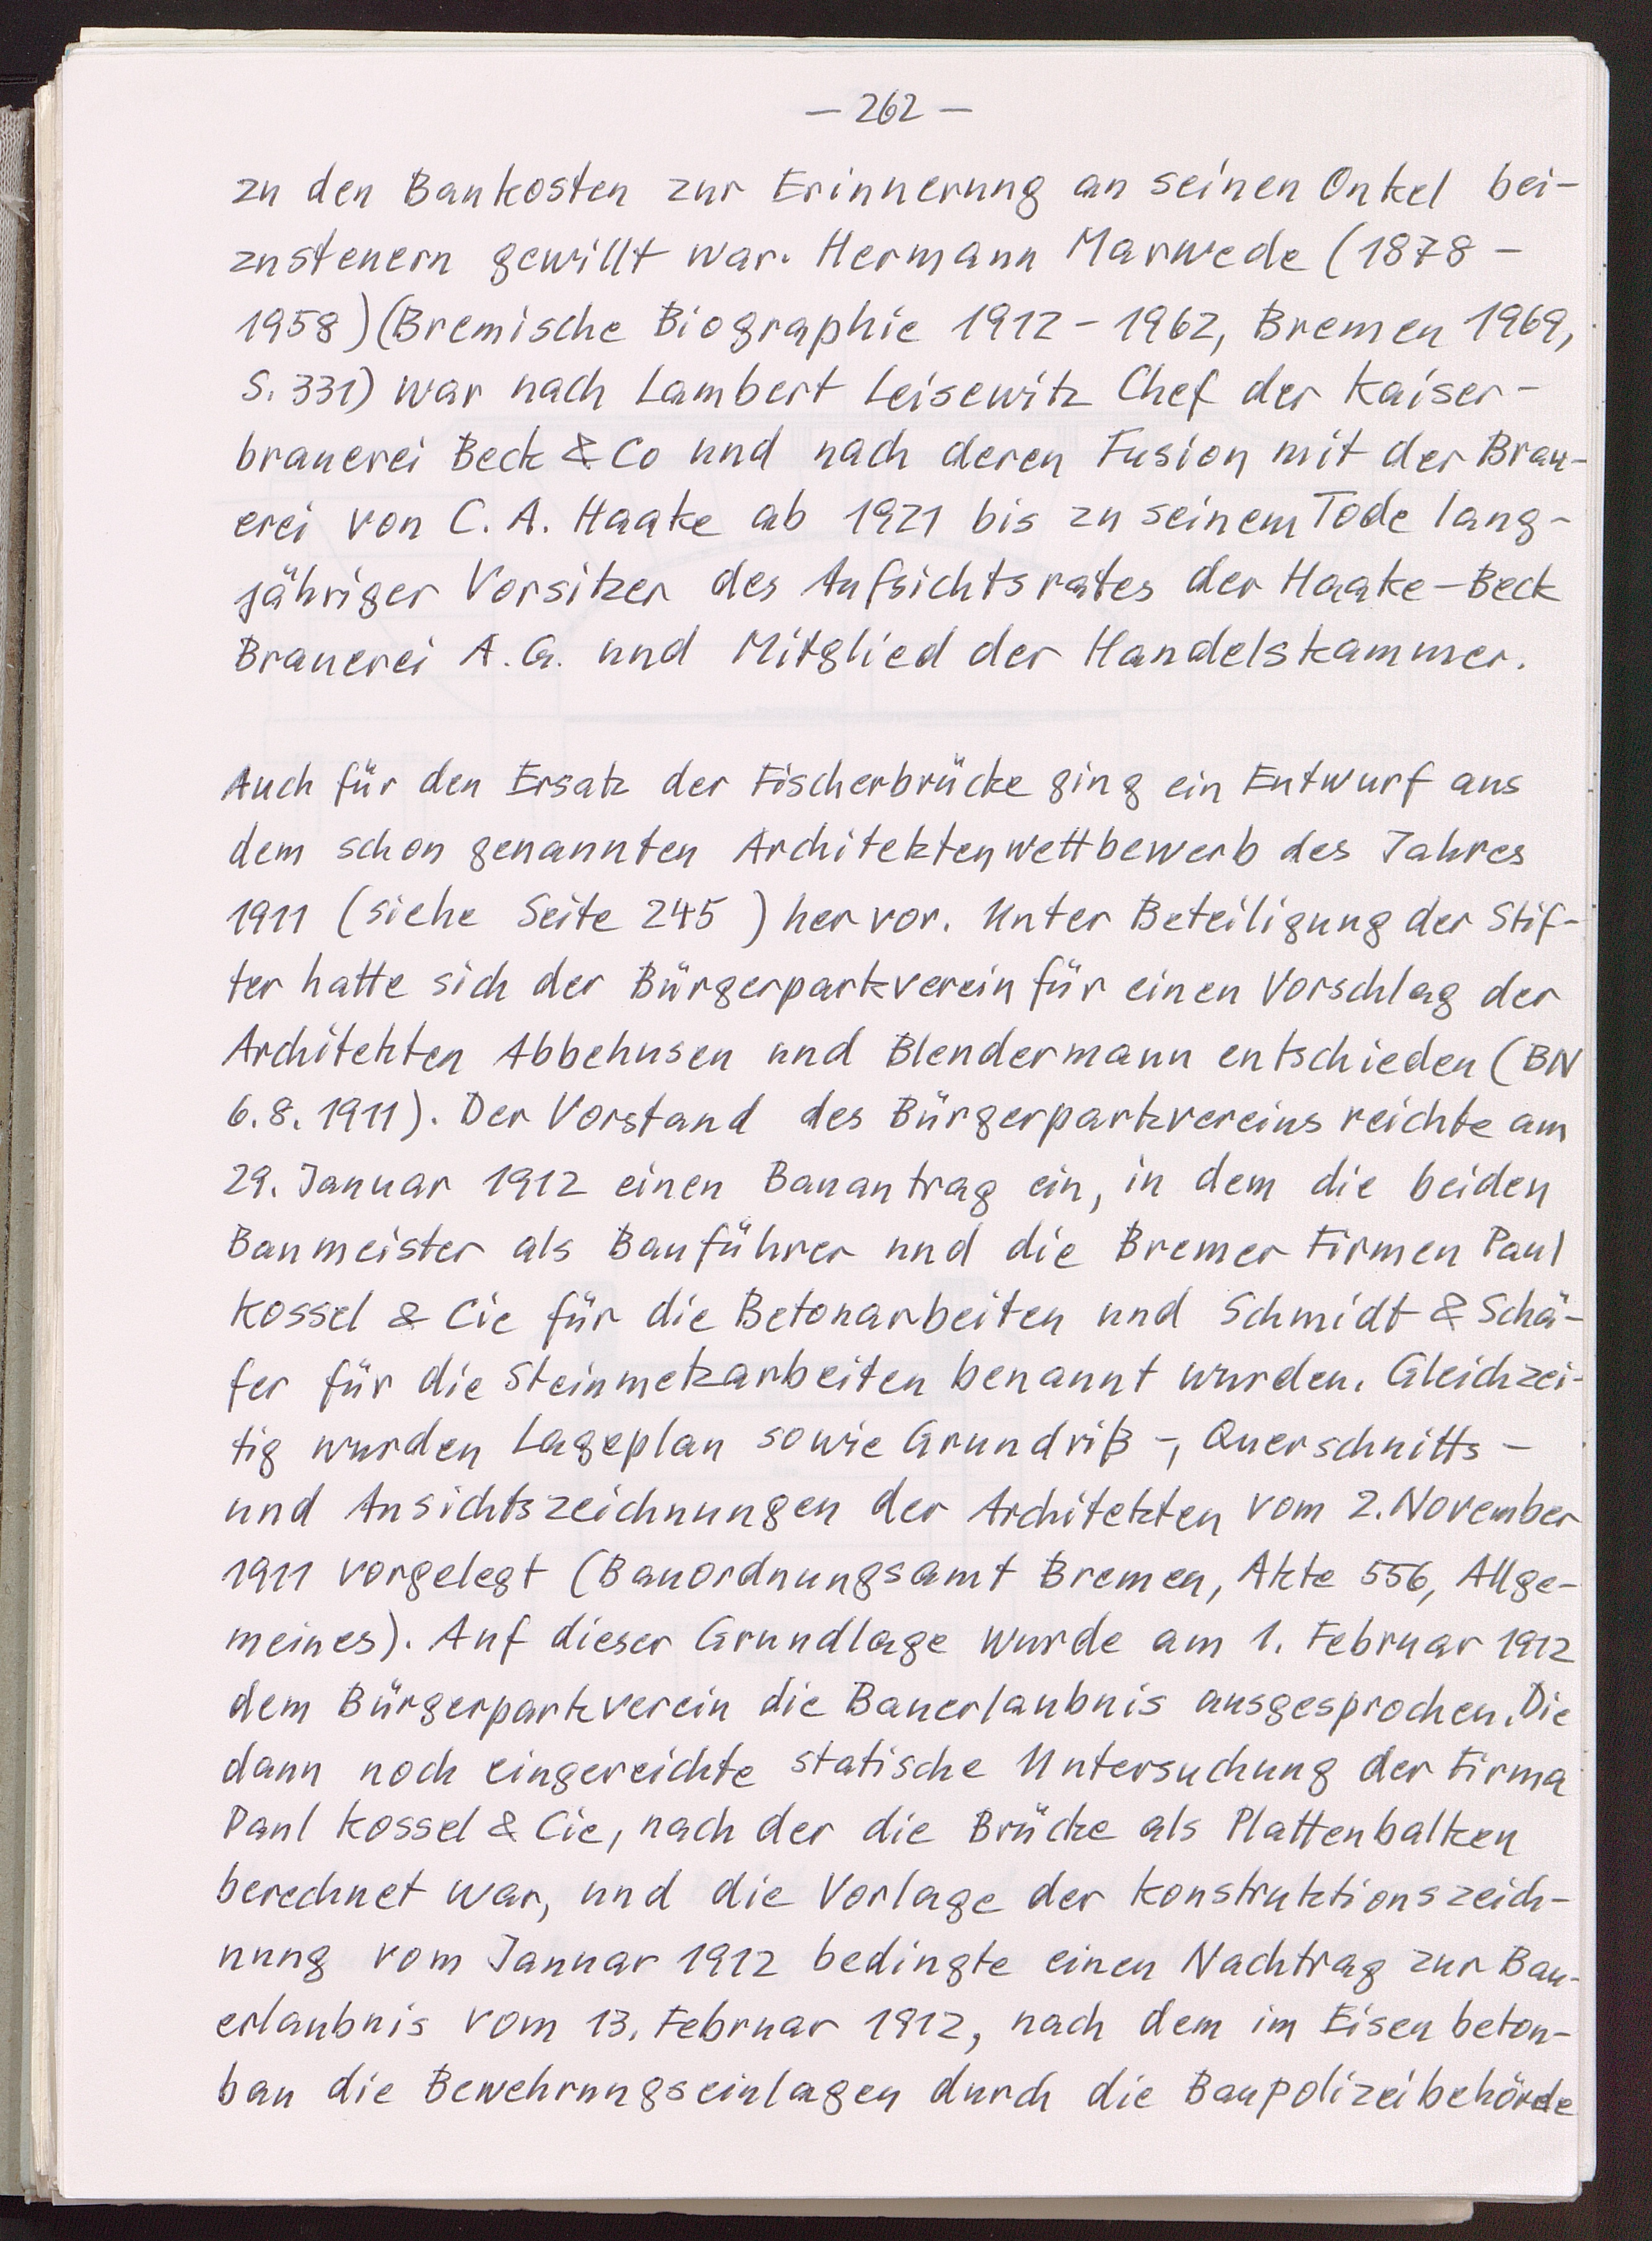 — 262 —
zu den Baukosten zur Erinnerung an seinen Onkel bei-
zusteuern gewillt war. Hermann Marwede (1878 -
1958) (Bremische Biographie 1912 - 1962, Bremen 1969,
S. 331) war nach Lambert Leisewitz Chef der Kaiser-
brauerei Beck & Co und nach deren Fusion mit der Brau-
erei von C. A. Haake ab 1921 bis zu seinem Tode lang-
jähriger Vorsitzer des Aufsichtsrates der Haake-Beck
Brauerei A.G. und Mitglied der Handelskammer.
Auch für den Ersatz der Fischerbrücke ging ein Entwurf aus
dem schon genannten Architektenwettbewerb des Jahres
1911 (siehe Seite 245 ) hervor. Unter Beteiligung der Stif-
ter hatte sich der Bürgerparkverein für einen Vorschlag der
Architekten Abbehusen und Blendermann entschieden (BN
6.8.1911). Der Vorstand des Bürgerparkvereins reichte am
29. Januar 1912 einen Bauantrag ein, in dem die beiden
Baumeister als Bauführer und die Bremer Firmen Paul
Kossel & Cie für die Betonarbeiten und Schmidt & Schä-
fer für die Steinmetzarbeiten benannt wurden. Gleichzei-
tig wurden Lageplan sowie Grundriß -, Querschnitts -
und Ansichtszeichnungen der Architekten vom 2. November
1911 vorgelegt (Bauordnungsamt Bremen, Akte 556, Allge-
meines). Auf dieser Grundlage wurde am 1. Februar 1912
dem Bürgerparkverein die Bauerlaubnis ausgesprochen. Die
dann noch eingereichte statische Untersuchung der Firma
Paul Kossel & Cie, nach der die Brücke als Plattenbalken
berechnet war, und die Vorlage der Konstruktionszeich-
nung vom Januar 1912 bedingte einen Nachtrag zur Bau-
erlaubnis vom 13. Februar 1912, nach dem im Eisenbeton-
bau die Bewehrungseinlagen durch die Baupolizeibehörde